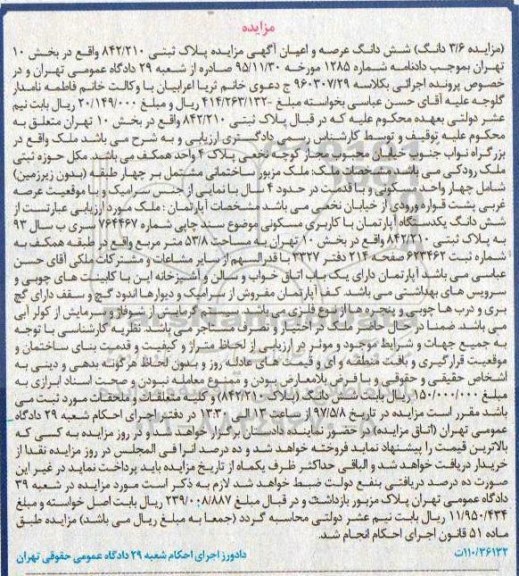 مزایده
(مزایده ۳/۶ دانگ) شش دانگ عرصه و اعیان آگهی مزایده پلاک ثبتی ۸۴۲/۲۱۰ واقع در بخش ۱۰
تهران بموجب دادنامه شماره ۱۲۸۵ مورخه ۹۵/۱۱/۳۰ صادره از شعبه ۲۹ دادگاه عمومی تهران و در
خصوص پرونده اجرائی بکلاسه ۹۶۰۳۰۷/۲۹ ج دعوی خانم ثریا اعرابیان با وکالت خانم فاطمه نامدار
گلوجه علیه آقای حسن عباسی بخواسته مبلغ ۴۱۴/۲۶۳/۱۳۲- ریال و مبلغ ۲۰/۱۴۹/۰۰۰ ریال بابت نیم
عشر دولتی بعهده محکوم علیه که در قبال پلاک ثبتی ۸۴۲/۲۱۰ واقع در بخش ۱۰ تهران متعلق به
محکوم علیه توقیف و توسط کارشناس رسمی دادگستری ارزیابی و به شرح می باشد ملک واقع در
بزرگراه نواب جنوب خیابان محبوب مجاز کوچه نخعی پلاک ۴ واحد همکف می باشد. مکل حوزه ثبتی
ملک رودکی می باشد. مشخصات ملک: ملک مزبور ساختمانی مشتمل بر چهار طبقه (بدون زیرزمین)
شامل چهار واحد مسکونی و با قدمت در حدود ۴ سال با نمایی از جنس سرامیک و با موقعیت عرصه
غربی پشت قواره ورودی از خیابان نخعی می باشد مشخصات آپارتمان: ملک مورد ارزیابی عبارتست از
شش دانگ یکدستگاه آپارتمان با کاربری مسکونی موضوع سند چاپی شماره ۷۶۴۴۶۷ سری ب سال ۹۳
به پلاک ثبتی ۸۴۲/۲۱۰ واقع در بخش ۱۰ تهران به مساحت ۵۳/۸ متر مربع واقع در طبقه همکف به
شماره ثبت ۶۲۳۴۶۲ صفحه ۲۱۴ دفتر ۲۳۲۷ با قدرالسهم از سایر مشاعات و مشترکات ملکی آقای حسن
عباسی می باشد آپارتمان دارای یک باب اتاق خواب و سالن و آشپزخانه این با کابینت های چوبی و
سرویس های بهداشتی می باشد. کف آپارتمان مفروش از سرامیک و دیوارها اندود گچ و سقف دارای گچ
بری و درب ها چوبی و پنجره ها از نوع فلزی می باشد. سیستم گرمایش از شوفاژ و سرمایش از کولر آبی
می باشد. ضمنا در حال حاضر ملک در اختیار و تصرف مستاجر می باشد. نظریه کارشناسی با توجه
به جمیع جهات و شرایط موجود و موثر در ارزیابی از لحاظ متراژ و کیفیت و قدمت بنای ساختمان و
موقعیت قرارگیری و بافت منطقه ای و قیمت های عادله روز و بدون لحاظ هرگونه بدهی و دینی به
اشخاص حقیقی و حقوقی و با فرض بلامعارض بودن و ممنوع معامله نبودن و صحت اسناد ابرازی به
مبلغ ۱۵۰/۰۰۰/۰۰۰ ریال بابت شش دانگ (پلاک ۸۴۲/۲۱۰) و کلیه متعلقات و ملحقات مورد ثبت می
باشد مقرر است مزایده در تاریخ ۹۷/۵/۸ از ساعت ۱۳ الی ۱۳:۳۰ در دفتر اجرای احکام شعبه ۲۹ دادگاه
عمومی تهران (اتاق مزایده) با حضور نماینده دادستان برگزار خواهد شد و در روز مزایده به کسی که
بالاترین قیمت را پیشنهاد نماید فروخته خواهد شد و ده درصد آنرا فی المجلس در روز مزایده نقدا از
خریدار دریافت خواهد شد و الباقی حداکثر ظرف یکماه از تاریخ مزایده باید پرداخت نماید در غیر این
صورت ده درصد دریافتی بنفع دولت ضبط خواهد شد لازم به ذکر است مورد مزایده در شعبه ۳۹
دادگاه عمومی تهران پلاک مزبور بازداشت و در قبال مبلغ ۲۳۹/۰۰۸/۸۸۷ ریال بابت اصل خواسته و مبلغ
۱۱/۹۵۰/۴۳۴ ریال بابت نیم عشر دولتی محاسبه گردد (جمعا به مبلغ ریال می باشد) مزایده طبق
ماده ۵۱ قانون اجرای احکام انجام شد.
۱۱۰/۳۶۱۳۲ت دادورز اجرای احکام شعبه ۲۹ دادگاه عمومی حقوقی تهران